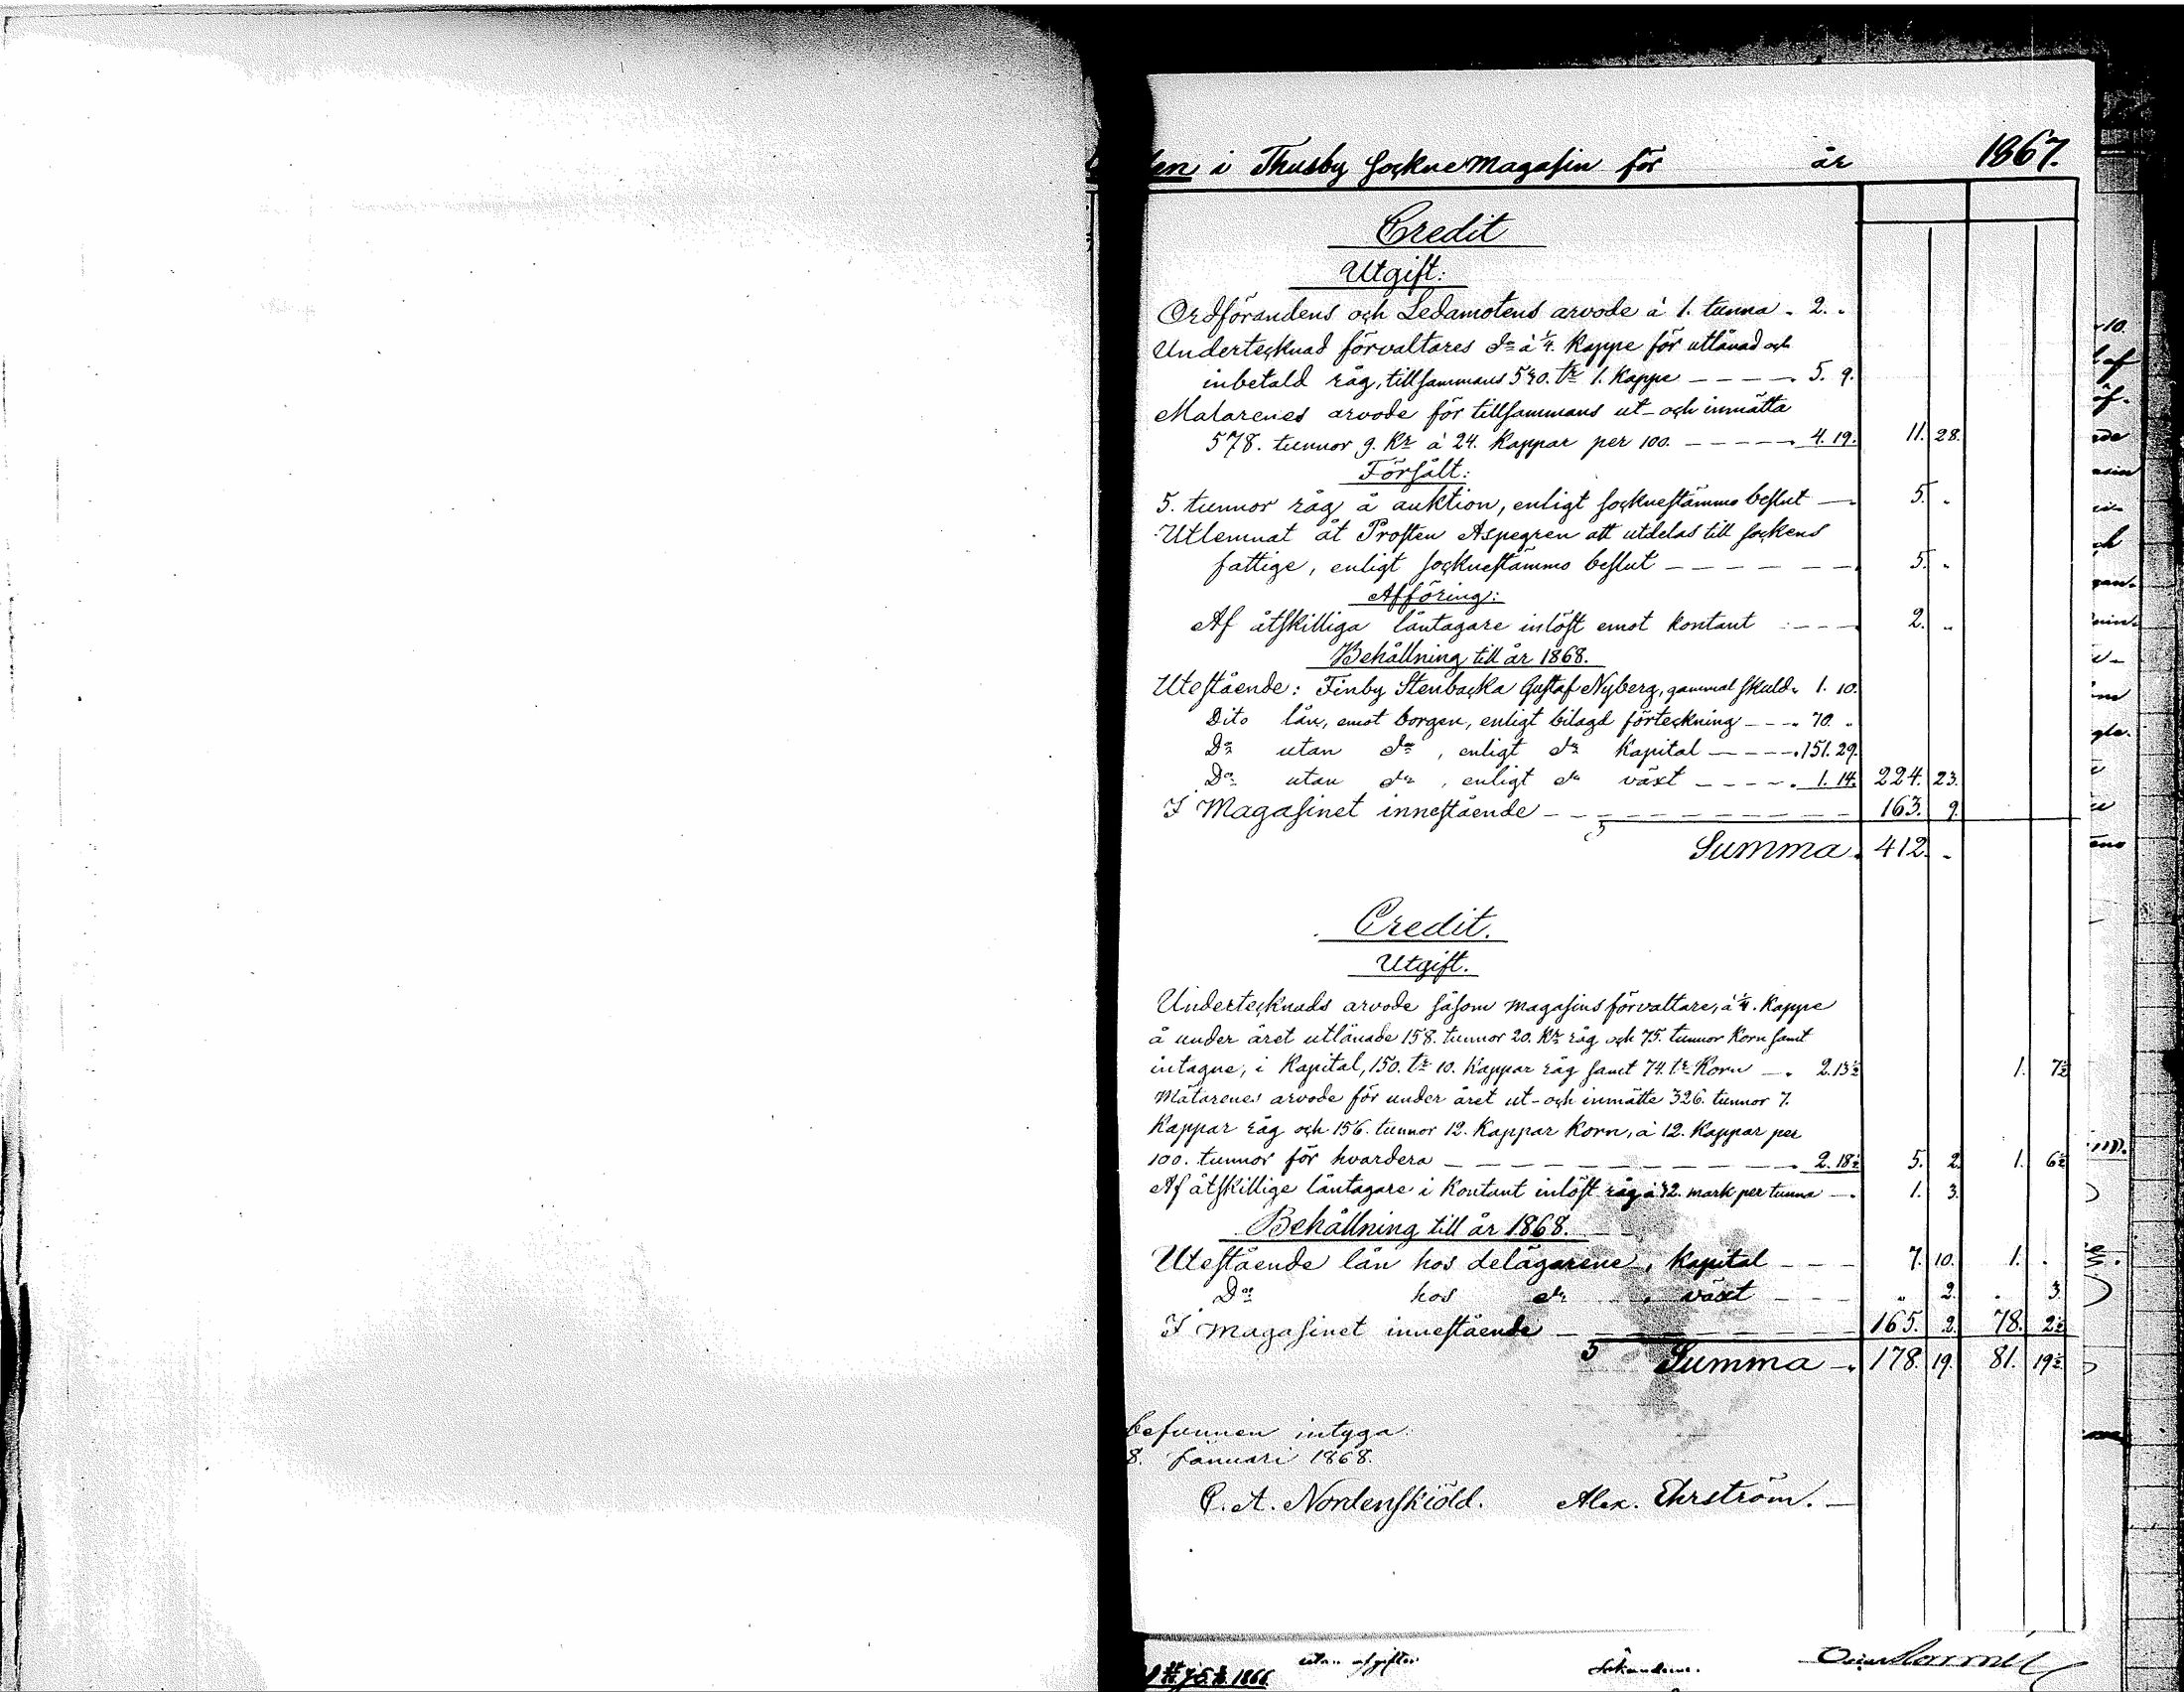 en i Thusby Sockne Magasin för år 1867.
Credit
Utgift:
Ordförandens och Ledamotens arvode à 1. tunna „ 2. „
Undertecknad förvaltares do à 1/4. Kappe för utlånad och
inbetald råg, tillsammans 570. tr 1. Kappe — — — — „ 5. 9.
Matarenes arvode för tillsammans ut- och inmätta
578. tunnor 9. Kr à 24. Kappar per 100. — — — — — „ 4. 19. 11. 28.
Försålt:
5. tunnor råg å auktion, enligt socknestämmo beslut — „ 5. „
Utlemnat åt Prosten Aspegren att utdelas till sockens
fattige, enligt socknestämmo beslut — — — — — — 5. „
Afföring:
Af åtskilliga låntagare inlöst emot kontant — — — 2. „
Behållning till år 1868.
Utestående: Finby Stenbacka Gustaf Nyberg, gammal skuld „ 1. 10.
Dito lån, emot borgen, enligt bilagd förteckning — — „ 70. „
Do utan do, enligt do Kapital — — — — „ 151. 29.
Do utan do, enligt do växt — — — — „ 1. 14. 224. 23.
I Magasinet innestående — — — — — — — — — 163. 9.
Summa „ 412. „
Credit.
Utgift.
Undertecknads arvode såsom Magasinsförvaltare, à 1/4. Kappe
å under året utlånade 158. tunnor 20. Kr råg och 75. tunnor Korn samt
intagne, i Kapital, 150. tr 10. Kappar råg samt 74. tr Korn — „ 2. 13½ 1. 7½
Mätarenes arvode för under året ut- och inmätte 326. tunnor 7.
Kappar råg och 156. tunnor 12. Kappar Korn, à 12. Kappar per
100. tunnor för hvardera — — — — — — — — — — „ 2. 18½ 5. 2. 1. 6½
Af åtskillige låntagare i Kontant inlöst råg à 32. mark per tunna — „ 1. 3.
Behållning till år 1868.
Utestående lån hos delägarene, Kapital — — — 7. 10. 1. „
Do hos do, växt — — — „ 2. „ 3.
I Magasinet innestående — — — — — — — — 165. 2. 78. 2½
Summa — „ 178. 19. 81. 19½
befunnen intyga:
8. Januari 1868.
C. A. Nordenskiöld. Alex. Ehrström. —
utan afgifter
1866.